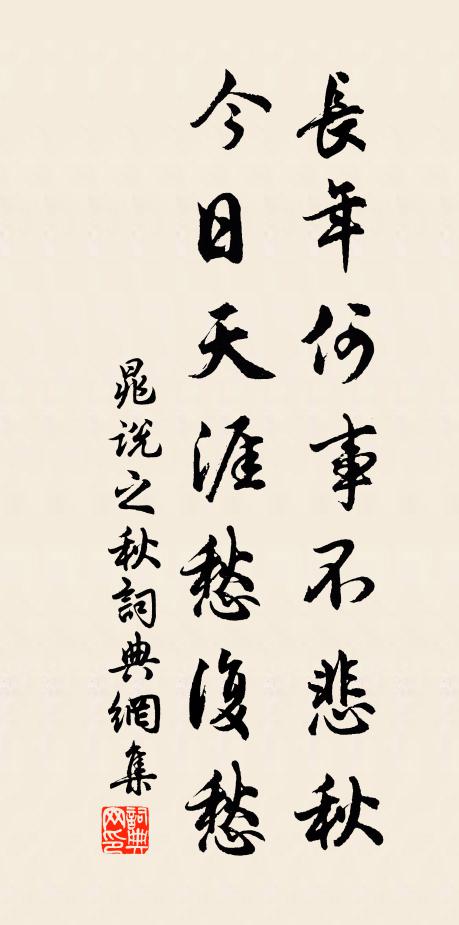 長年何事不悲秋
今日天涯愁復愁
晁説之秋詞典網集
詞典網印